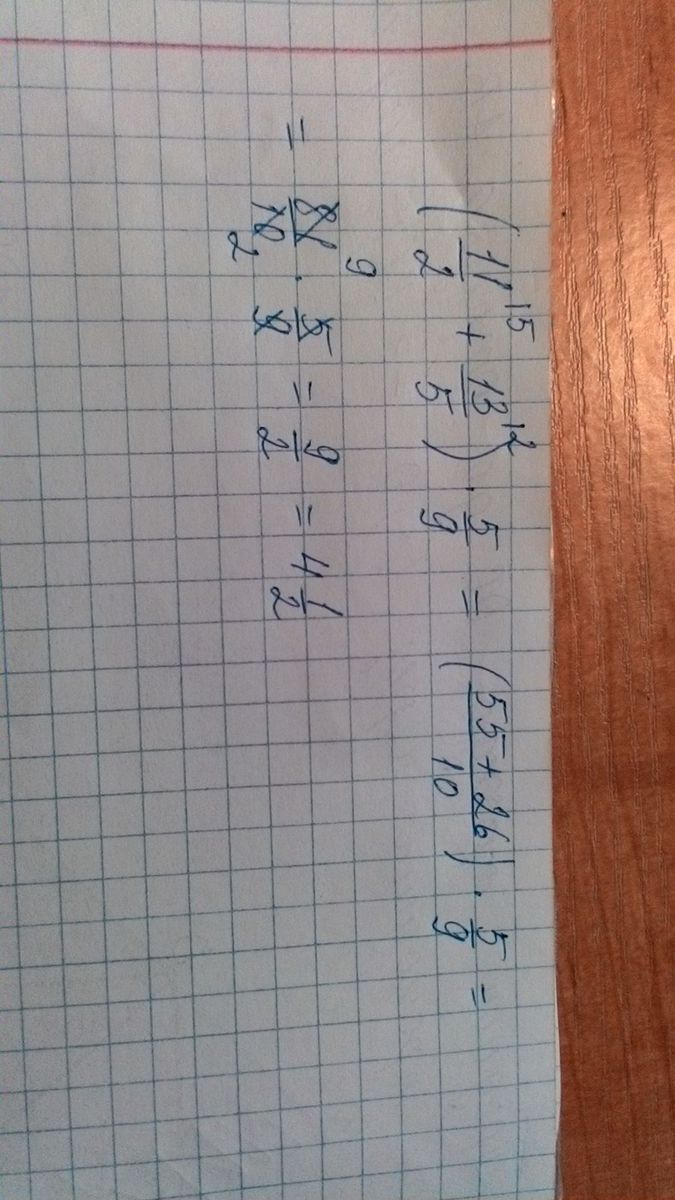 (11/2 ⁽⁵ + 13/5 ⁽²) · 5/9 = (55 + 26 / 10) · 5/9 =
= 81/10 · 5/9 = 9/2 = 4 1/2
9
2